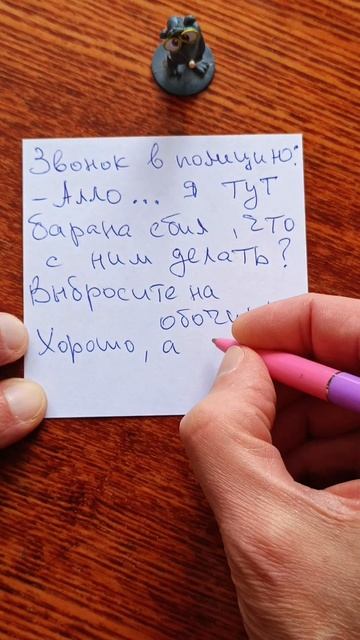 Звонок в полицию:
- Алло... я тут
барана сбил, что
с ним делать?
Выбросите на
Хорошо, а